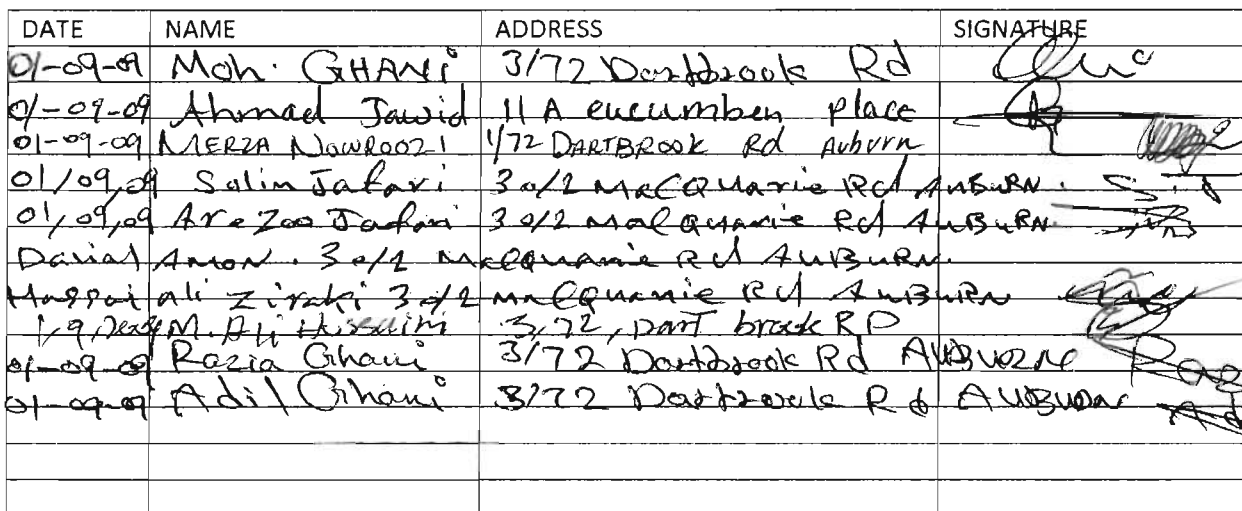 DATE NAME ADDRESS SIGNATURE
01-09-09 Moh. GHANi 3/72 Dartbrook Rd
01-09-09 Ahmad Jawid 11 A eucumben place
01-09-09 MERZA NOWROOZI 1/72 DARTBROOK Rd Auburn
01/09,09 Salim Jafari 30/2 MaCQuarie Rd AuBuRN.
01,09,09 Arezoo Jafari 30/2 MaCQuarie Rd AuBuRN.
Danial Amon. 30/2 MacQuarie Rd AuBuRN.
ali Ziraki 30/2 MaCQuarie Rd AuBuRN
M. Ali Hussaini 3,72, Dart brook RD
01-09-09 Razia Ghani 3/72 Dartbrook Rd
01-09-09 Adil Ghani 3/72 Dartbrook Rd